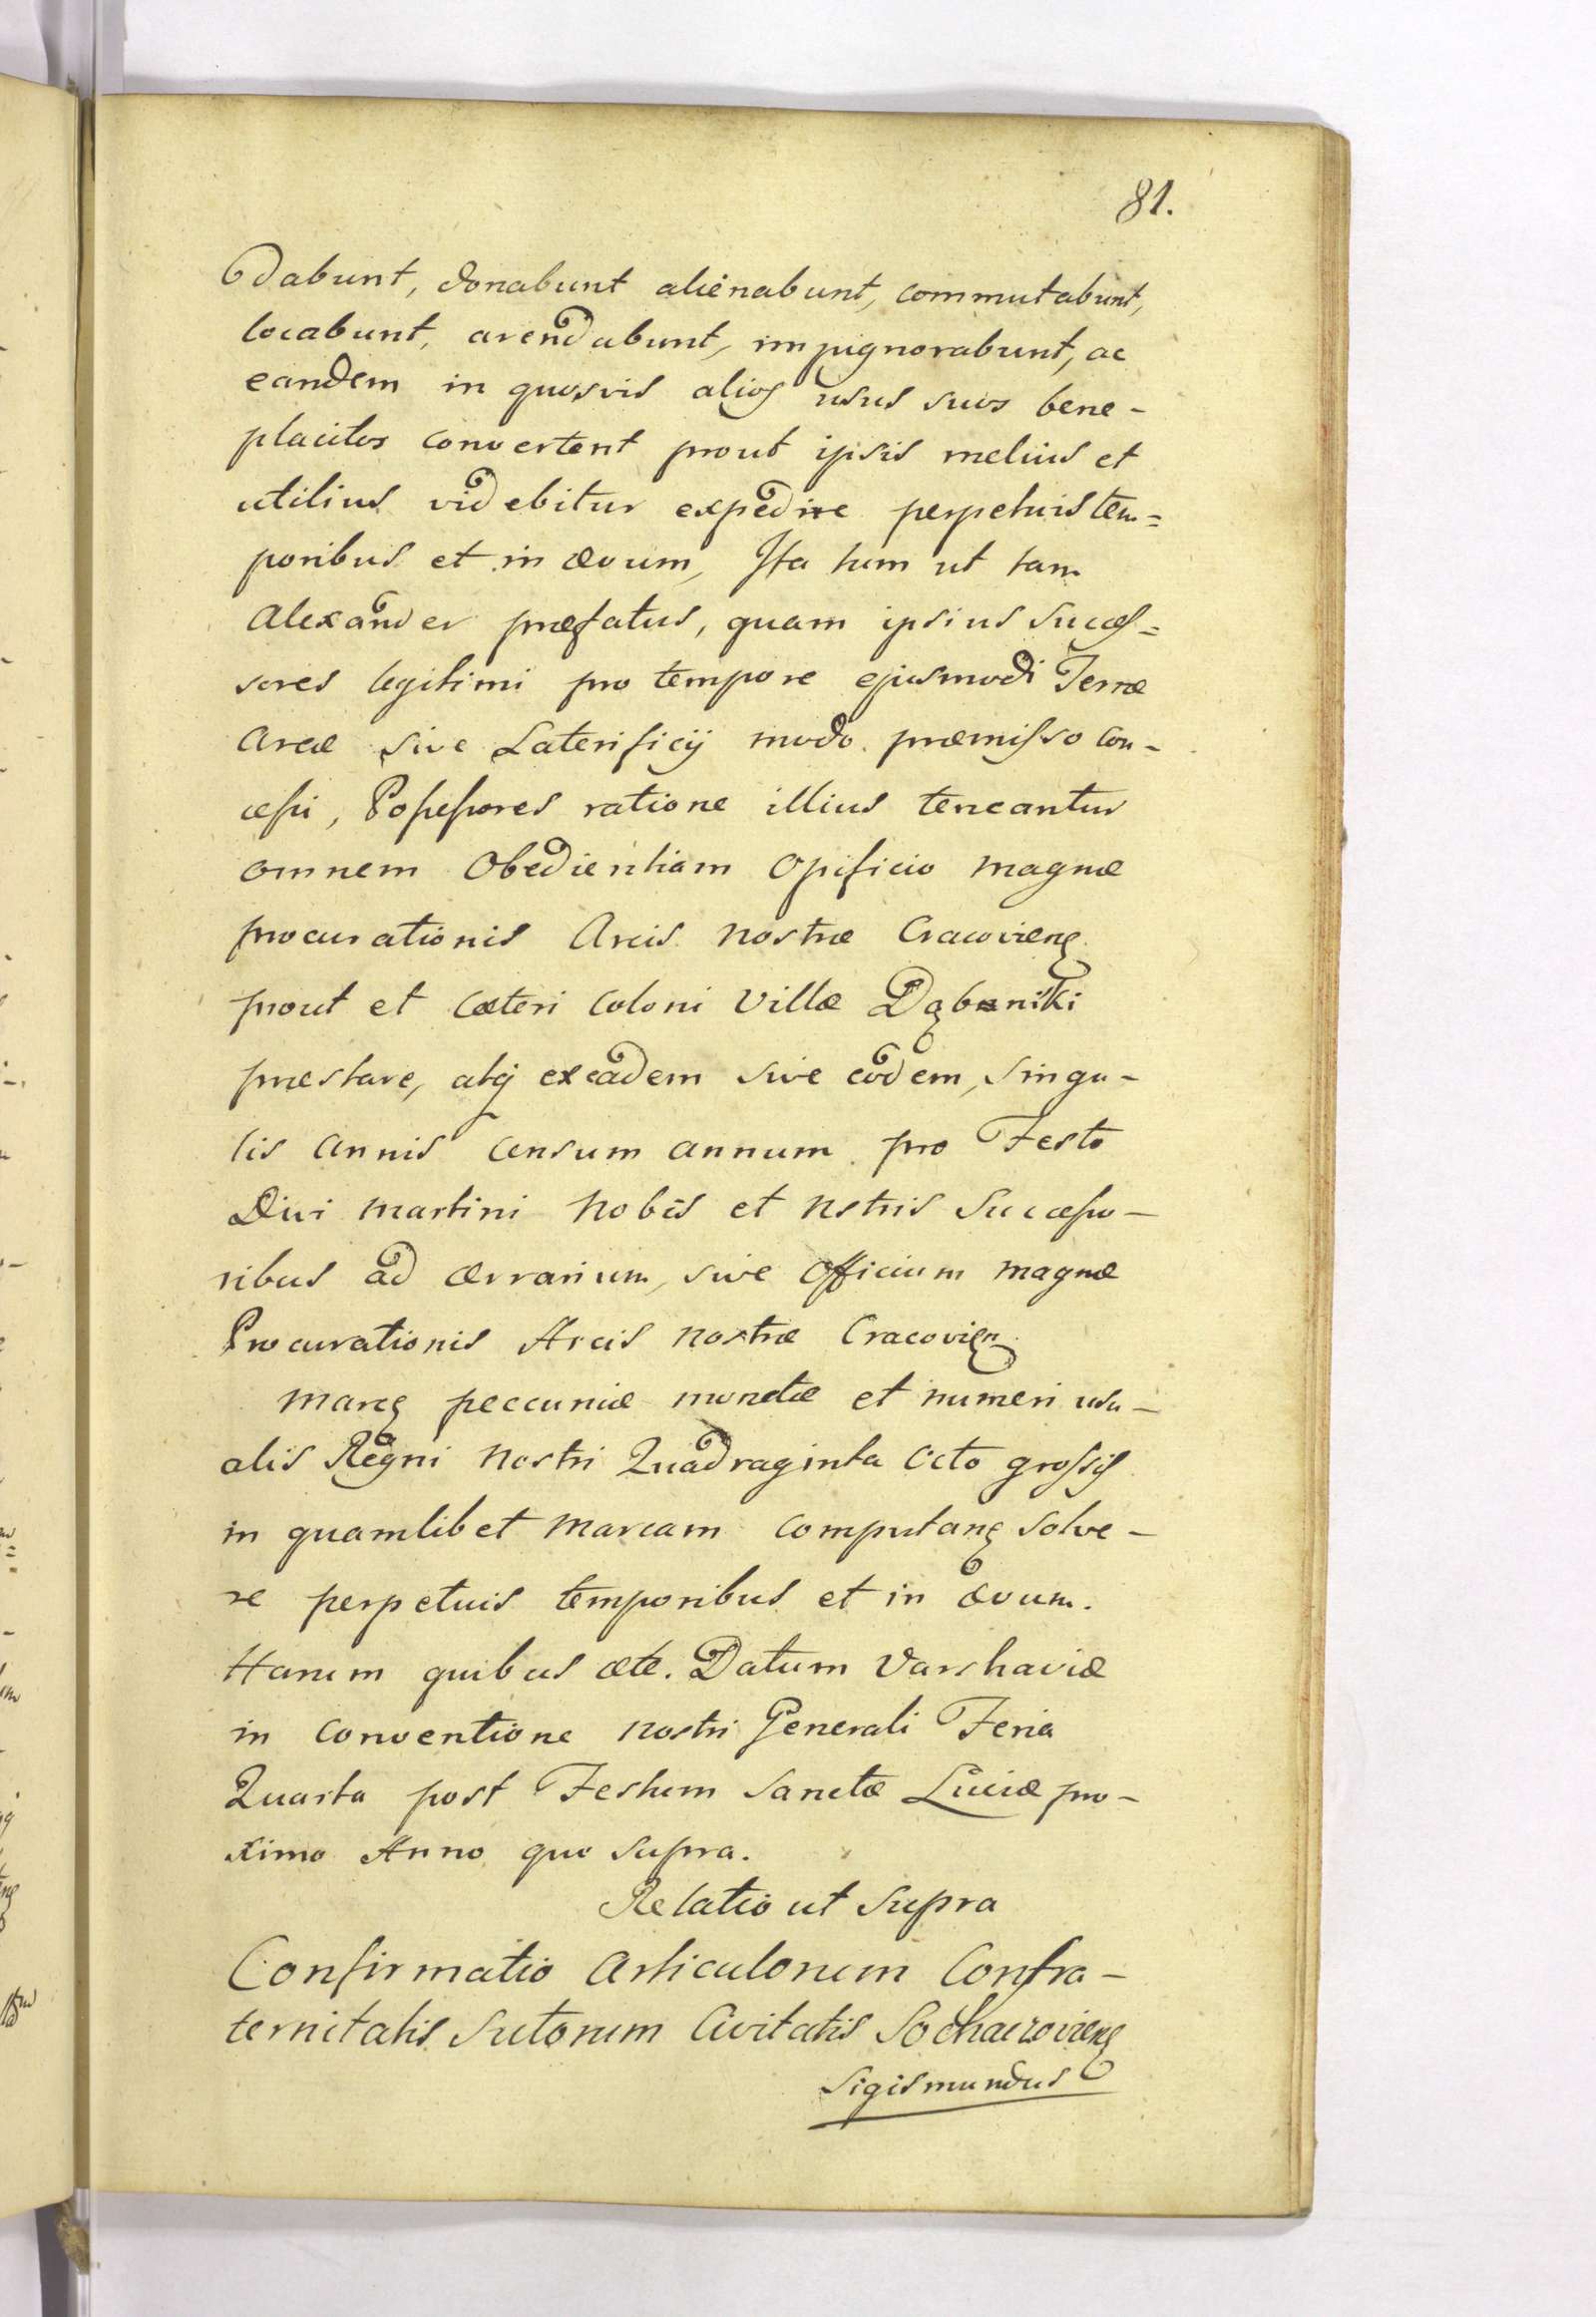 81.
dabunt, donabunt alienabunt, commutabunt,
locabunt, arendabunt, impignorabunt, ac
eandem in quosvis alios usus suos bene-
placitos convertent prout ipsis melius et
utilius videbitur expedire perpetuis tem=
poribus et in ævum, Ita tum ut tam
Alexander præfatus, quam ipsius succes=
sores legitimi pro tempore ejusmodi Terræ
Areæ sive Laterificij modo præmisso con-
cessi, Possessores ratione illius teneantur
omnem Obedientiam Opificio magnæ
procurationis Arcis nostræ Cracovieng
prout et cæteri coloni Villæ Dąbniki
præstare, atq exeadem sive eodem, singu-
lis annis censum annum pro Festo
Divi Martini nobis et nstris Successo-
ribus ad ærrarium, sive Officium magnæ
Procurationis Arcis nostræ Cracovien
marcg peccuniæ monetæ et numeri usu-
alis Regni Nostri Quadraginta Octo grossis
in quamlibet marcam computang solve-
re perpetuis temporibus et in ævum.
Harum quibus ætc. Datum Varshaviæ
in conventione nostri Generali Feria
Quarta post Festum Sanctæ Luciæ pro-
ximo Anno quo supra.
Relatio ut supra
Confirmatio Articulorum Confra-
ternitatis Sutorum Civitatis Sochaczovieng
Sigismundus